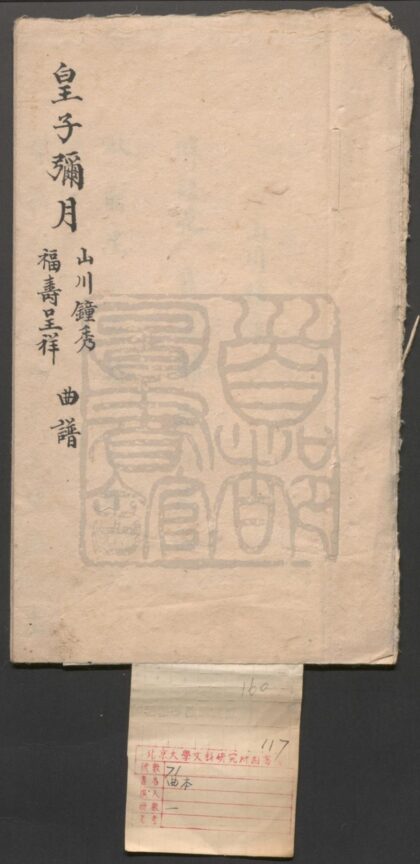 皇子彌月
山川鐘秀
福壽呈祥
曲譜
首都
圖書館
160
117
北京大學文科研究所
71
曲本
一